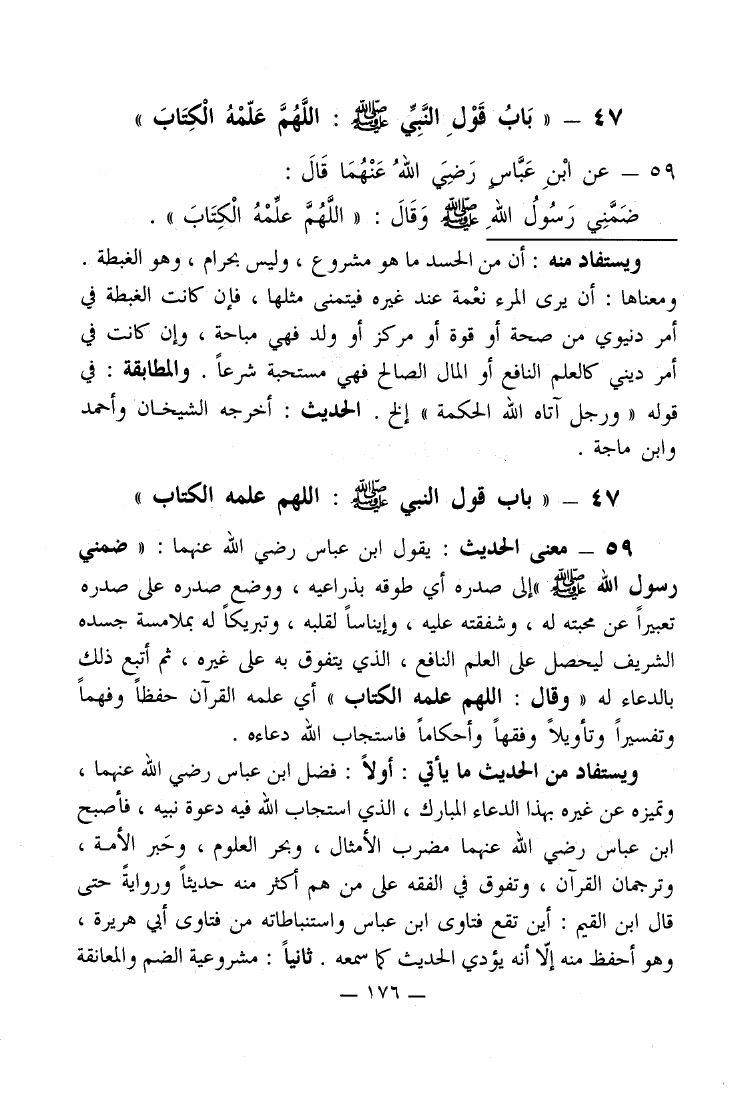 ٤٧ – « بَابُ قَوْلِ النَّبِيِّ ﷺ : اللَّهُمَّ عَلِّمْهُ الْكِتَابَ »
٥٩ – عن ابْنِ عَبَّاسٍ رَضِيَ اللهُ عَنْهُمَا قَالَ :
ضَمَّنِي رَسُولُ اللهِ ﷺ وَقَالَ : « اللَّهُمَّ علِّمْهُ الْكِتَابَ » .
ويستفاد منه : أن من الحسد ما هو مشروع ، وليس بحرام ، وهو الغبطة .
ومعناها : أن يرى المرء نعْمة عند غيره فيتمنى مثلها ، فإن كانت الغبطة في
أمر دنيوي من صحة أو قوة أو مركز أو ولد فهي مباحة ، وإن كانت في
أمر ديني كالعلم النافع أو المال الصالح فهي مستحبة شرعاً . والمطابقة : في
قوله « ورجل آتاه الله الحكمة » إلخ . الحديث : أخرجه الشيخان وأحمد
وابن ماجة .
٤٧ – « باب قول النبي ﷺ : اللهم علمه الكتاب »
٥٩ – معنى الحديث : يقول ابن عباس رضي الله عنهما : « ضمني
رسول الله ﷺ »إلى صدره أي طوقه بذراعيه ، ووضع صدره على صدره
تعبيراً عن محبته له ، وشفقته عليه ، وإيناساً لقلبه ، وتبريكاً له بملامسة جسده
الشريف ليحصل على العلم النافع ، الذي يتفوق به على غيره ، ثم أتبع ذلك
بالدعاء له « وقال : اللهم علمه الكتاب » أي علمه القرآن حفظاً وفهماً
وتفسيراً وتأويلاً وفقهاً وأحكاماً فاستجاب الله دعاءه .
ويستفاد من الحديث ما يأتي : أولاً : فضل ابن عباس رضي الله عنهما ،
وتميزه عن غيره بهذا الدعاء المبارك ، الذي استجاب الله فيه دعوة نبيه ، فأصبح
ابن عباس رضي الله عنهما مضرب الأمثال ، وبحر العلوم ، وحَبر الأمة ،
وترجمان القرآن ، وتفوق في الفقه على من هم أكثر منه حديثاً وروايةً حتى
قال ابن القيم : أين تقع فتاوى ابن عباس واستنباطاته من فتاوى أبي هريرة ،
وهو أحفظ منه إلّا أنه يؤدي الحديث كما سمعه . ثانياً : مشروعية الضم والمعانقة
– ١٧٦ –